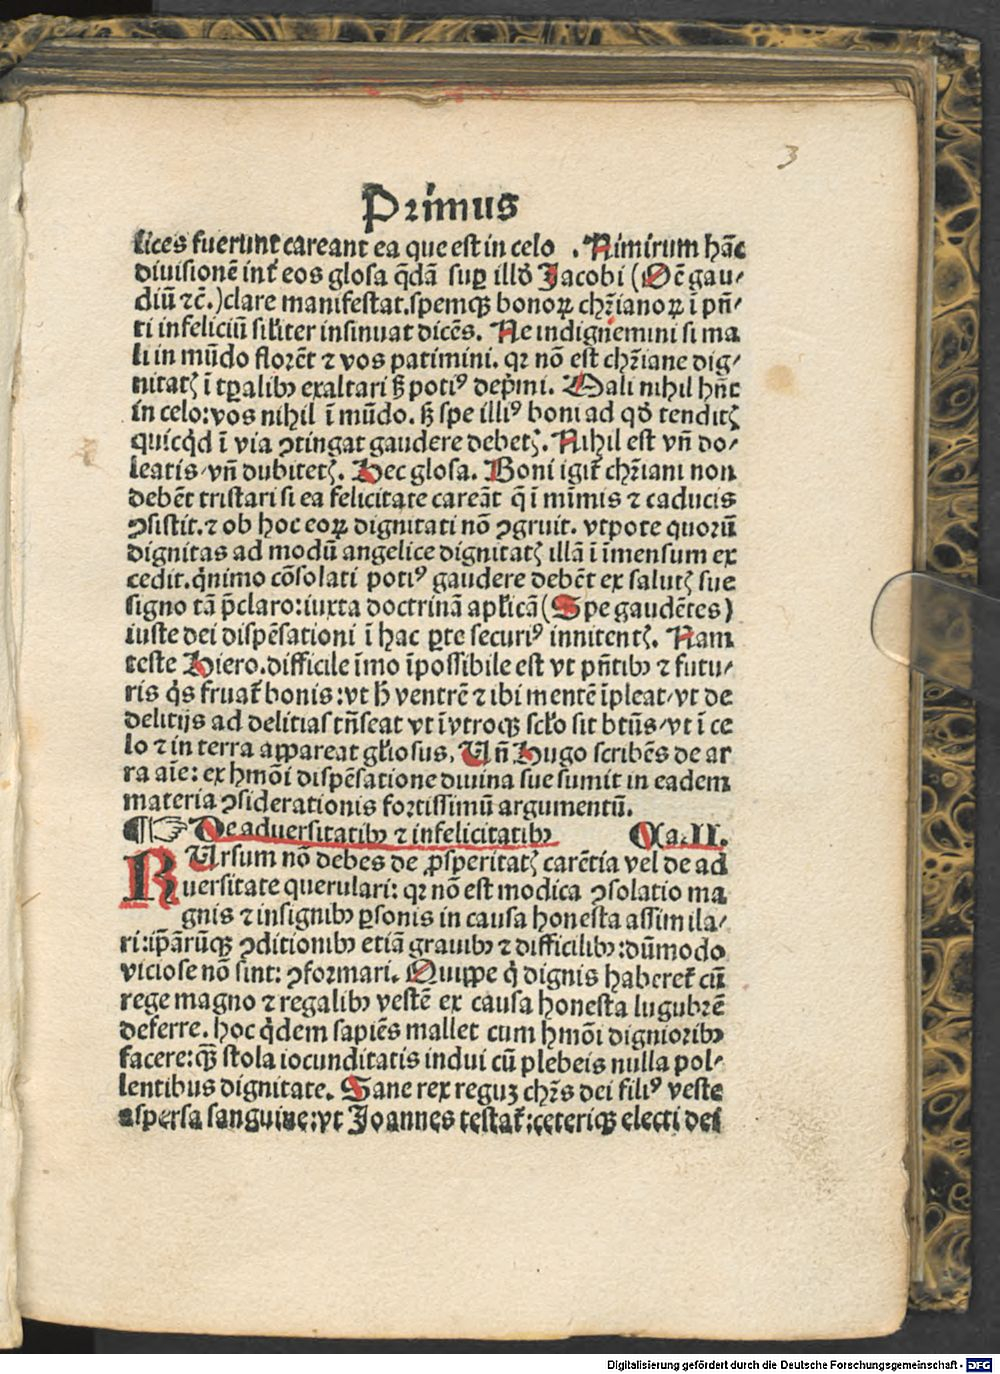 3
Primus
lices fuerunt careant ea que est in celo . Nimirum hāc
diuisionē int̄ eos glosa q̄dā suꝑ illo Jacobi (Oē gau⸗
diū ⁊c̄.) clare manifestat. spemqꝫ bonoꝝ chr̄ianoꝝ ī pn̄⸗
ti infeliciū siliter insinuat dicēs. Ne indignemini si ma
li in mūdo florēt ⁊ vos patimini. qr nō est chr̄iane dig⸗
nitatꝭ ī tꝑalibꝰ exaltari sꝫ potiꝰ dep̄mi. Mali nihil hn̄t
in celo: vos nihil ī mūdo. sꝫ spe illiꝰ boni ad qd̄ tenditꝭ
quicq̄d ī via ꝯtingat gaudere debetꝭ. Nihil est vn̄ do⸗
leatis/ vn̄ dubitetꝭ. Hec glosa. Boni igit̄ chr̄iani non
debēt tristari si ea felicitate careāt q̄ ī mīmis ⁊ caducis
ꝯsistit. ⁊ ob hoc eoꝝ dignitati nō ꝯgruit. vtpote quorū
dignitas ad modū angelice dignitatꝭ illā ī īmensum ex
cedit. q̄nimo cōsolati potiꝰ gaudere debēt ex salutꝭ sue
signo tā p̄claro: iuxta doctrinā apl̄icā (Spe gaudētes)
iuste dei dispēsationi ī hac ꝑte securiꝰ innitentꝭ. Nam
teste Hiero. difficile īmo īpossibile est vt pn̄tibꝰ ⁊ futu⸗
ris q̄s fruat̄ bonis: vt hꝫ ventrē ⁊ ibi mentē īpleat/ vt de
delitijs ad delitias trn̄seat vt ī vtroqꝫ scl̄o sit btūs/ vt ī ce
lo ⁊ in terra appareat gl̄iosus, Vn̄ Hugo scribēs de ar
ra aīe: ex hmōi dispēsatione diuina sue sumit in eadem
materia ꝯsiderationis fortissimū argumentū.
¶☞ De aduersitatibꝰ ⁊ infelicitatibꝰ Ca. II.
RUrsum nō debes de ꝓsperitatꝭ carētia vel de ad
uersitate querulari: qr nō est modica ꝯsolatio ma
gnis ⁊ insignibꝰ ꝑsonis in causa honesta assimila⸗
ri: ip̄arūqꝫ ꝯditionibꝰ etiā grauibꝰ ⁊ difficilibꝰ: dūmodo
viciose nō sint: ꝯformari. Quippe q̄ dignis haberet̄ cū
rege magno ⁊ regalibꝰ vestē ex causa honesta lugubrē
deferre. hoc q̄dem sapiēs mallet cum hmōi dignioribꝰ
facere: qꝫ̄ stola iocunditatis indui cū plebeis nulla pol⸗
lentibus dignitate. Sane rex reguꝫ chr̄s dei filiꝰ veste
aspersa sanguine: vt Joannes testat̄: ceteriqꝫ electi dei
Digitalisierung gefördert durch die Deutsche Forschungsgemeinschaft - DFG